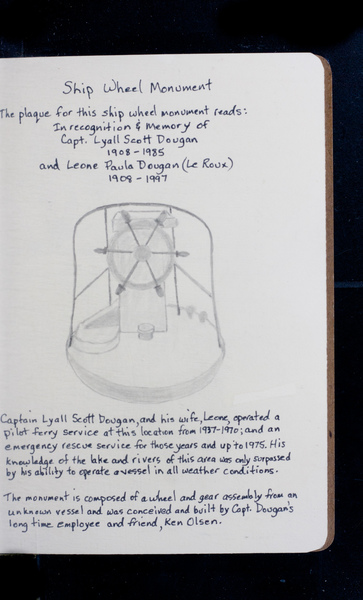 Ship Wheel Monument
The plaque for this ship wheel monument reads:
In recognition & Memory of
Capt. Lyall Scott Dougan
1908 - 1985
and Leone Paula Dougan (Le Roux)
1908 - 1997
Captain Lyall Scott Dougan, and his wife, Leone, operated a
pilot ferry service at this location from 1937-1970; and an
emergency rescue service for those years and up to 1975. His
knowledge of the lake and rivers of this area was only surpassed
by his ability to operate a vessel in all weather conditions.
The monument is composed of a wheel and gear assembly from an
unknown vessel and was conceived and built by Capt. Dougan's
long time employee and friend, Ken Olsen.